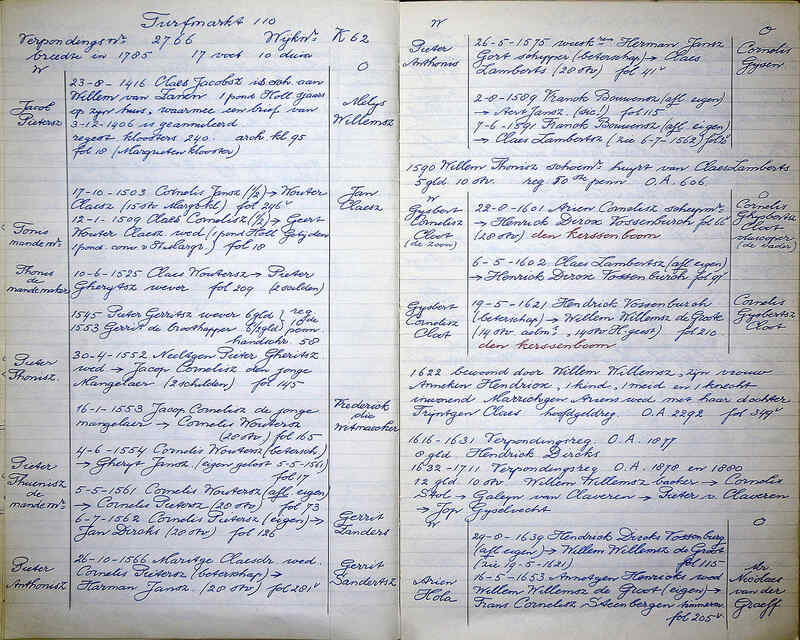 Turfmarkt 110
Verpondings nr. 2766 Wijk nr. K 62
breedte in 1785 17 voet 10 duim
W O
Jacob Pietersz
23-8-1416 Claes Jacobsz is sch. aan
Willem van Zanen 1 pond Holl sjaers
op zijn huis, waarmee een brief van
3-2-1406 is geannuleerd
regest kloosters 240. arch. kl. 95
fol 18 (Margrieten klooster)
Melys Willemsz
17-10-1503 Cornelis Jansz (½) → Wouter
Claesz (15 otv Margr kl) fol 246v
Jan Claesz
Tonis mandemr.
12-1-1509 Claes Cornelisz (½) → Geert
Wouter Claesz wed (1 pond Holl Getijden
1 pond conv v St Margr.) fol 18
Thonis de mandemaker
10-6-1525 Claes Woutersz → Pieter
Gherytsz wever fol 209 (2 scilden)
1545 Pieter Gerritsz wever 6 gld } reg
1553 Gerrit de 6 ½ gld } 10de penn.
handschr. 58
Pieter Thonisz.
30-4-1552 Neeltgen Pieter Gheritsz
wed → Jacop Cornelisz den jonge
Mangelaer (2 schilden) fol 145
16-1-1553 Jacop Cornelisz de jonge
mangelaer → Cornelis Woutersz
(20 otv) fol 165
Frederick die Witmaecker
4-6-1554 Cornelis Woutersz (betersch)
→ Gheryt Jansz. (eigen gelost 5-5-1561)
fol 17v
Pieter Thuenisz de mandemr.
5-5-1561 Cornelis Woutersz (afl. eigen)
→ Cornelis Pietersz (20 otv) fol 73
6-7-1562 Cornelis Pietersz (eigen) →
Jan Dirckz (20 otv) fol 126
Gerrit Sanders
Pieter Anthonisz
26-10-1566 Maritge Claesdr. wed.
Cornelis Pietersz (beterschap) →
Harman Jansz. (20 otv) fol 281v
Gerrit Sandertsz
W O
Pieter Anthonis
26-5-1575 weesk ren Herman Jansz
Gort schipper (beterschap) → Claes
Lamberts (20 otv) fol 41v
Cornelis Gysen.
2-8-1589 Franck Bouwensz (afl eigen)
→ Aert Jansz. (sic!) fol 115
7-6-1591 Franck Bouwensz (afl. eigen)
→ Claes Lambertsz (zie 6-7-1562)
1590 Willem Thonisz schoenm. huyrt van Claes Lamberts
5 gld. 10 otv. reg 50 ste penn O.A. 606.
W O
Gysbert Cornelisz Cloot (de zoon)
22-8-1601 Arien Cornelisz scheepmr.
→ Henrick Dircx Vossenburch fol 66v
(20 otv) den kerssenboom
Cornelis Ghysbertsz Cloot (de vader)
6-5-1602 Claes Lambertsz (afl eigen)
→ Henrick Dircx Vossenburch fol 91v
Gysbert Cornelisz Cloot
19-5-1621 Hendrick Vossenburch
(beterschap) → Willem Willemsz de Groote
(14 otv aelm., 14 otv H. geest) fol 210
den kerssenboom
Cornelis Gysbertsz Cloot
1622 bewoond door Willem Willemsz, zijn vrouw
Anneken Hendricx, 1 kind, 1 meid en 1 knecht
inwonend Marrichgen Ariens wed met haar dochter
Tryntgen Claes hoofdgeldreg. O.A. 2292 fol 349v
1616-1631 Verpondingsreg. O.A. 1877
8 gld Hendrick Dircks
1632-1711 Verpondingsreg O.A. 1878 en 1880
12 gld. 10 otv. Willem Willemsz backer → Cornelis
Stol → Galeyn van Claveren → Pieter v. Claveren
→ Jop Gyselvecht
W O
29-8-1639 Hendrick Dircks Vossenburg
(afl eigen) → Willem Willemsz de Groot
(zie 19-5-1621) fol 115
Arien Hola
16-5-1653 Annetgen Henricks wed
Willem Willemsz de Groot (eigen) →
Frans Cornelisz Steenbergen timmerm.
fol 205v
Mr. Nicolaes van der Graeff